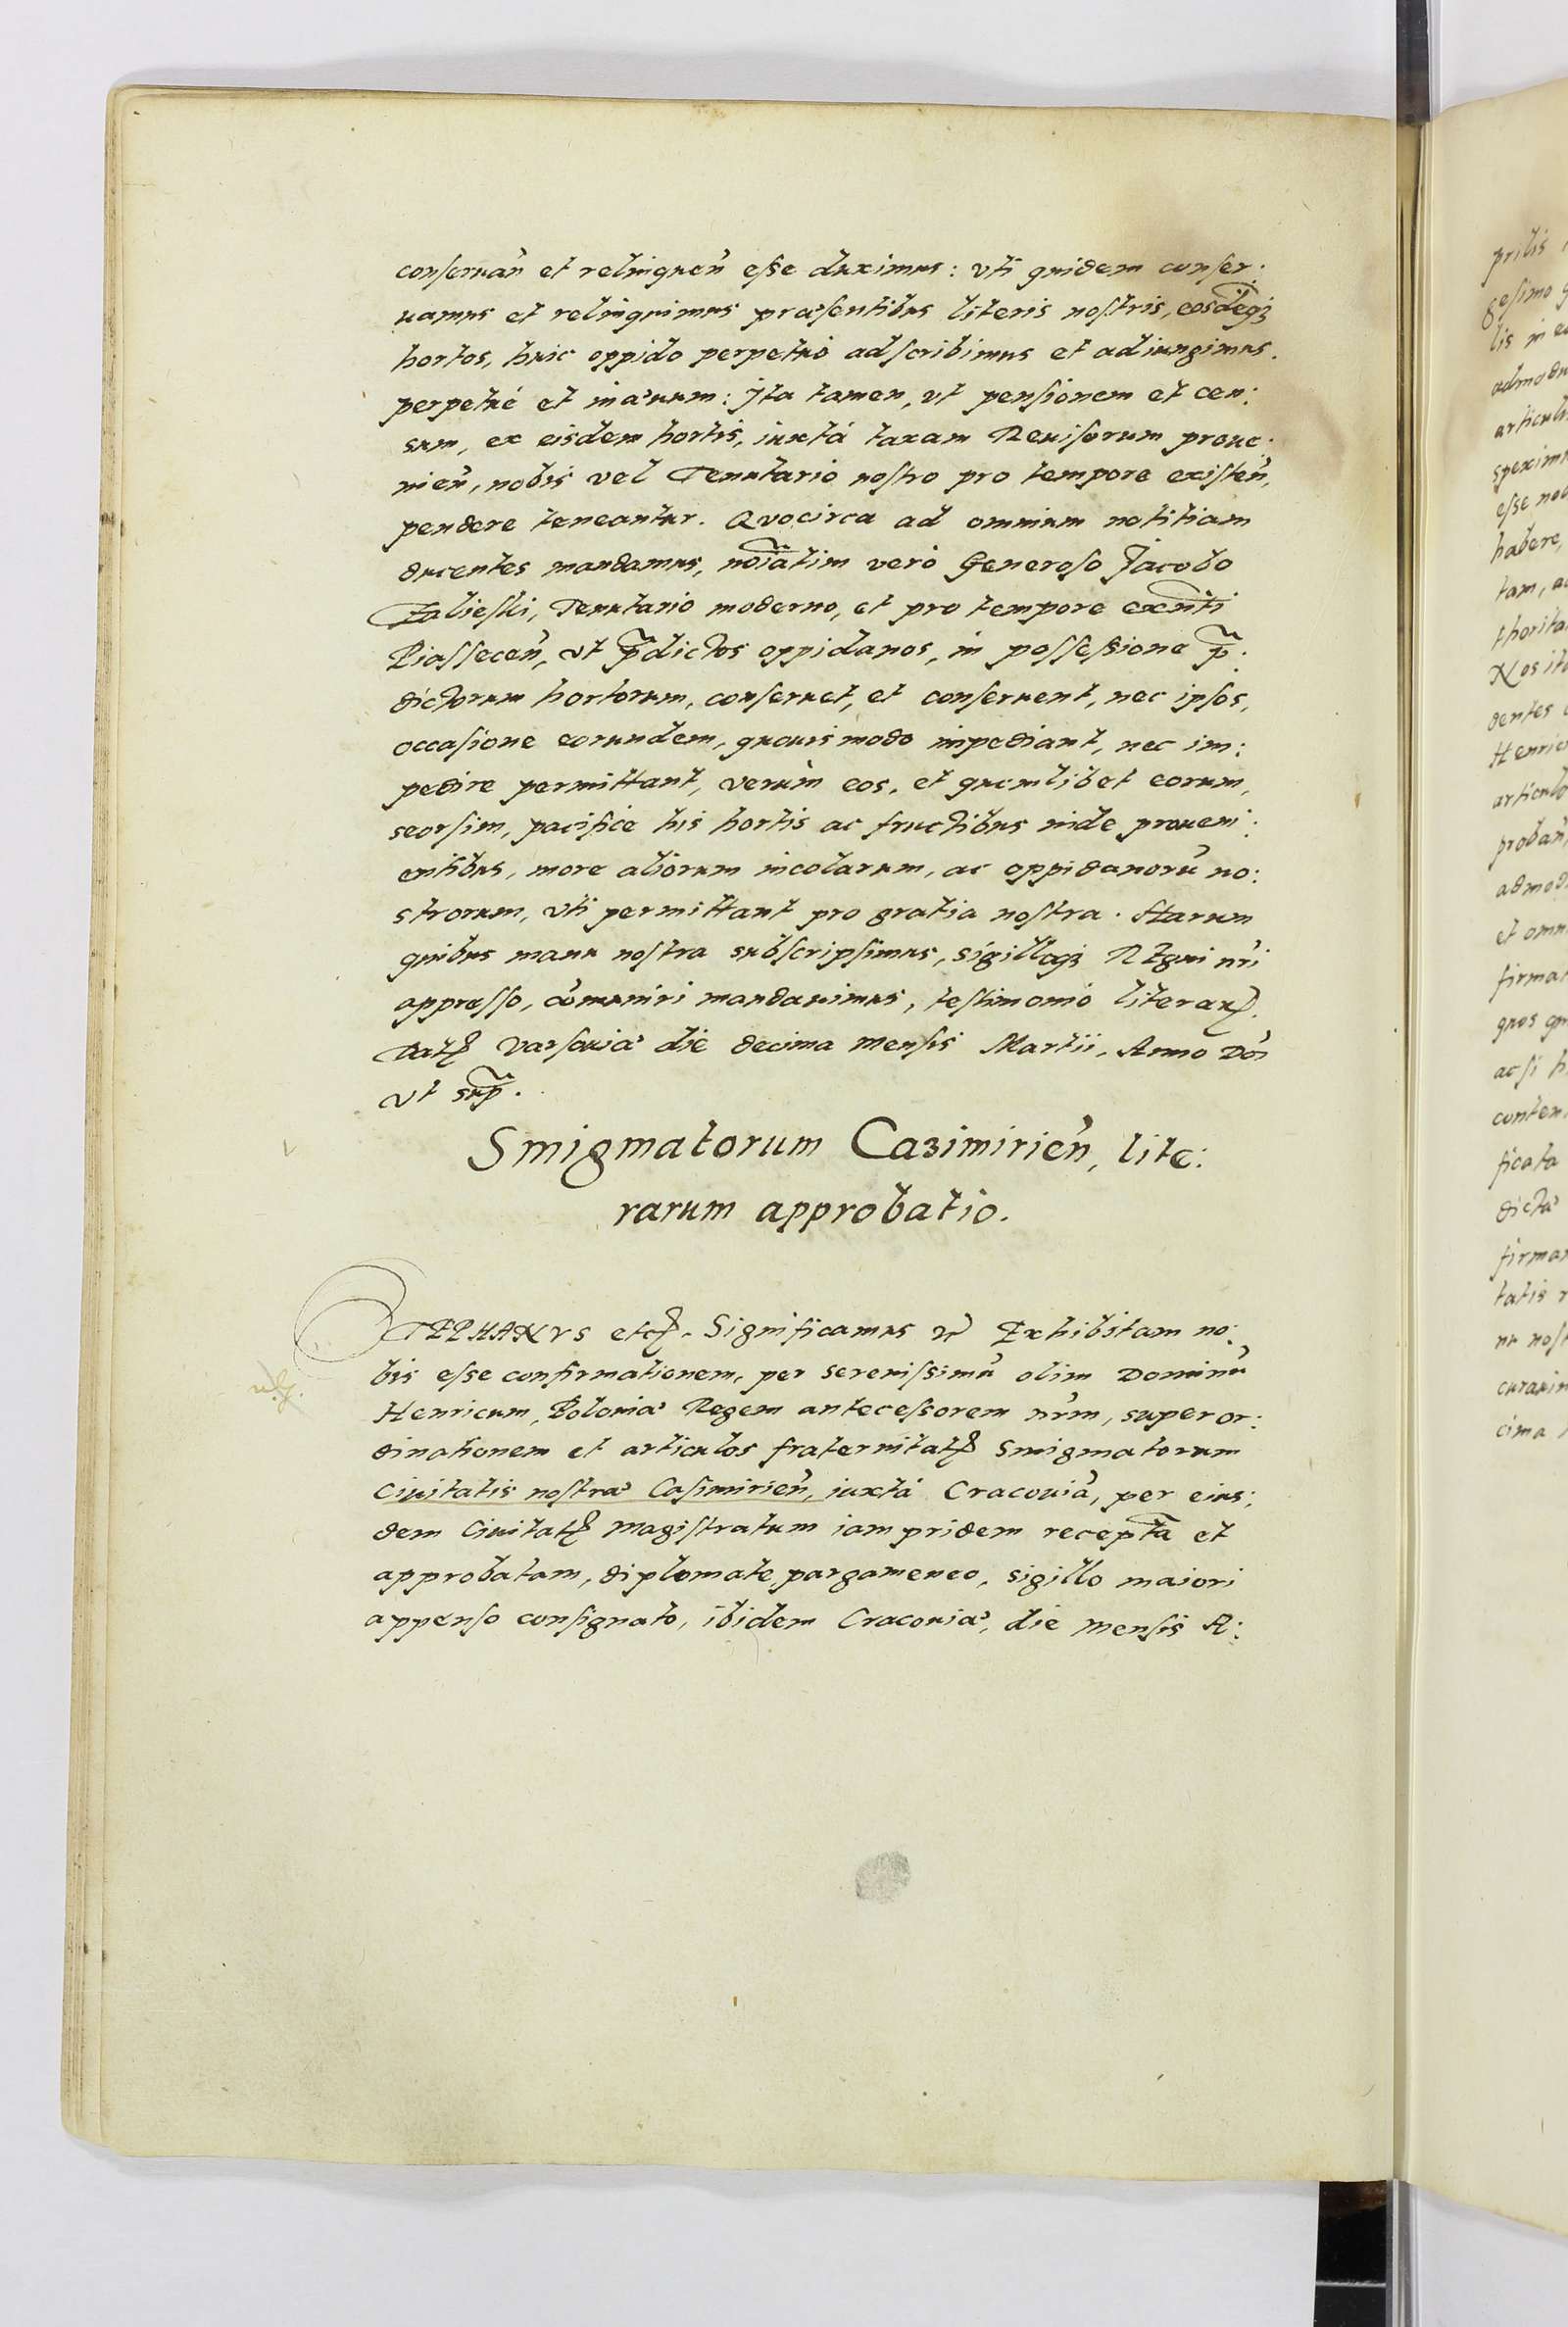 conseruan̄ et relinquen̄ esse duximus: vti quidem conser:
uamus et relinquimus præsentibus literis nostris, eosdēq₃
hortos, huic oppido perpetuò adscribimus et adiungimus.
perpetuè et in æuum: jta tamen, vt pensionem et cen:
sum, ex eisdem hortis, iuxtá taxam Reuisorum proue:
nien̄, nobis vel Tenutario nostro pro tempore existen̄,
pendere teneantur. Quocirca ad omnium notitiam
ducentes mandamus, noīatim verò Generoso Jacobo
Zalieski, Tenutario moderno, et pro tempore exn̄ti
Piassecen̄, vt p̄dictos oppidanos, in possessione p̄:
dictorum hortorum, conseruet, et conseruent, nec ipsos,
occasione eorundem, quouis modo impediant, nec im:
pedire permittant, verùm eos, et quemlibet eorum,
seorsim, pacificè his hortis ac fructibus inde proueni:
entibus, more aliorum incolarum, ac oppidanorū no:
strorum, vti permittant pro gratia nostra. Harum
quibus manu nostra subscripsimus, sigilloq₃ REgni nr̄i
appresso, cōmuniri mandauimus, testimonio literaꝝ.
Datꝭ Varsouiæ die decima mensis Martii, Anno Dōi
vt sup̄.
Smigmatorum Cazimirien̄, lite:
rarum approbatio.
STEPHANVS etcꝭ. Significamus etc̄ Exhibitam no:
bis esse confirmationem, per serenissimū olim Dominū
Henricum, Poloniæ Regem antecessorem nr̄m, super or:
dinationem et articulos fraternitatꝭ Smigmatorum
Ciuitatis nostræ Casimirien̄, iuxtá Cracouiā, per eius:
dem Ciuitatꝭ Magistratum iam pridem recepta̅ et
approbatam, diplomate pargameneo, sigillo maiori
appenso consignato, ibidem Cracouiæ, die mensis A: